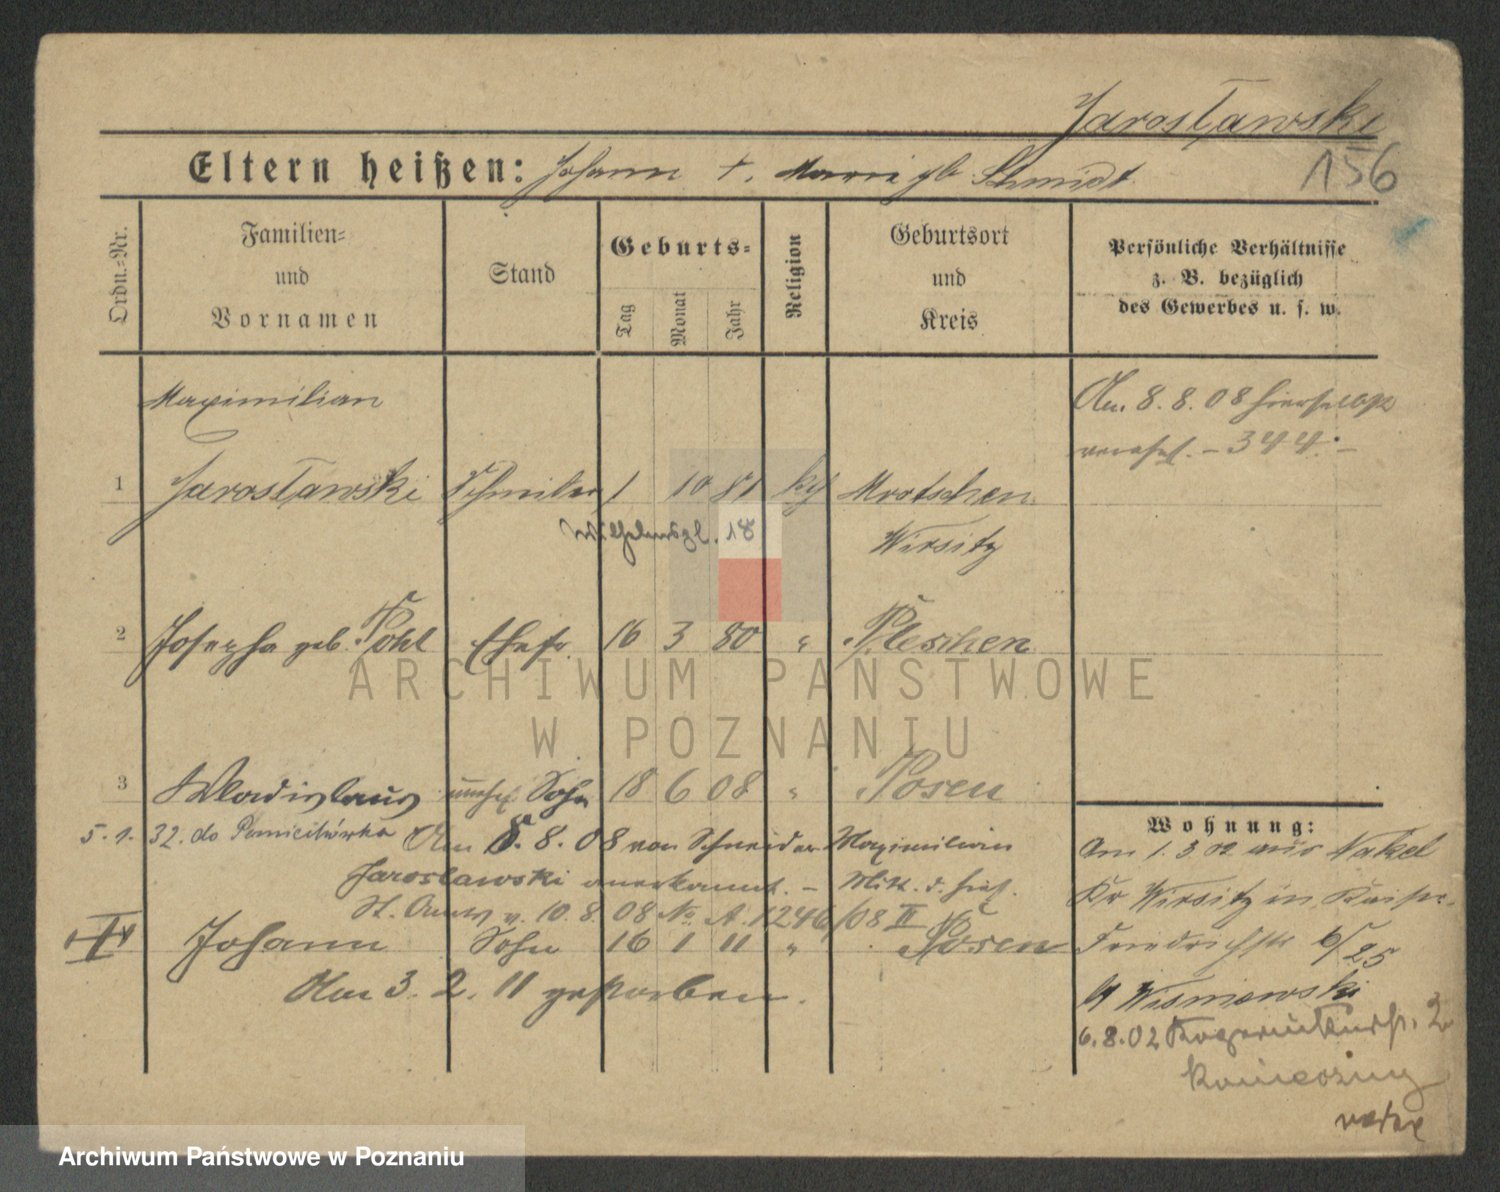 Jarosławski
Eltern heißen: Johann †, Marie gb Schmidt
156
Ordn.=Nr.
Familien=
und
Vornamen
Stand
Geburts=
Tag
Monat
Jahr
Religion
Geburtsort
und
Kreis
Persönliche Verhältnisse
z. B. bezüglich
des Gewerbes u. s. w.
Maximilian
1 Jarosławski 1 10 81 kth Mrotschen
Wirsitz
Am 8. 8. 08 hierselbst
verehel. – 344. –
2 Josepha geb. Pohl Ehefr. 16 3 80 " Pleschen
3 Wladislaus unehel. Sohn 18 6 08 " Posen
5. 1. 32. do
Am 8. 8. 08 von Schneider Maximilian
Jaroslawski anerkannt. – Mitt. d. hies.
St. Amts v. 10. 8. 08 No A. 1246/08 II
Johann Sohn 16 1 11 " Posen
Am 3. 2. 11 gestorben.
Wohnung:
Am 1. 3 02 aus Nakel
Kr Wirsitz in
Friedrichstr 25
b/ Wisniewski
6. 8. 02
ARCHIWUM PAŃSTWOWE
W POZNANIU
Archiwum Państwowe w Poznaniu